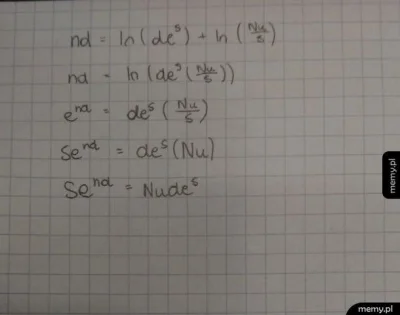 nd = ln(de^s) + ln(Nu/s)
nd = ln(de^s(Nu/s))
e^nd = de^s(Nu/s)
se^nd = de^s(Nu)
Se^nd = Nude^s
memy.pl
memy.pl